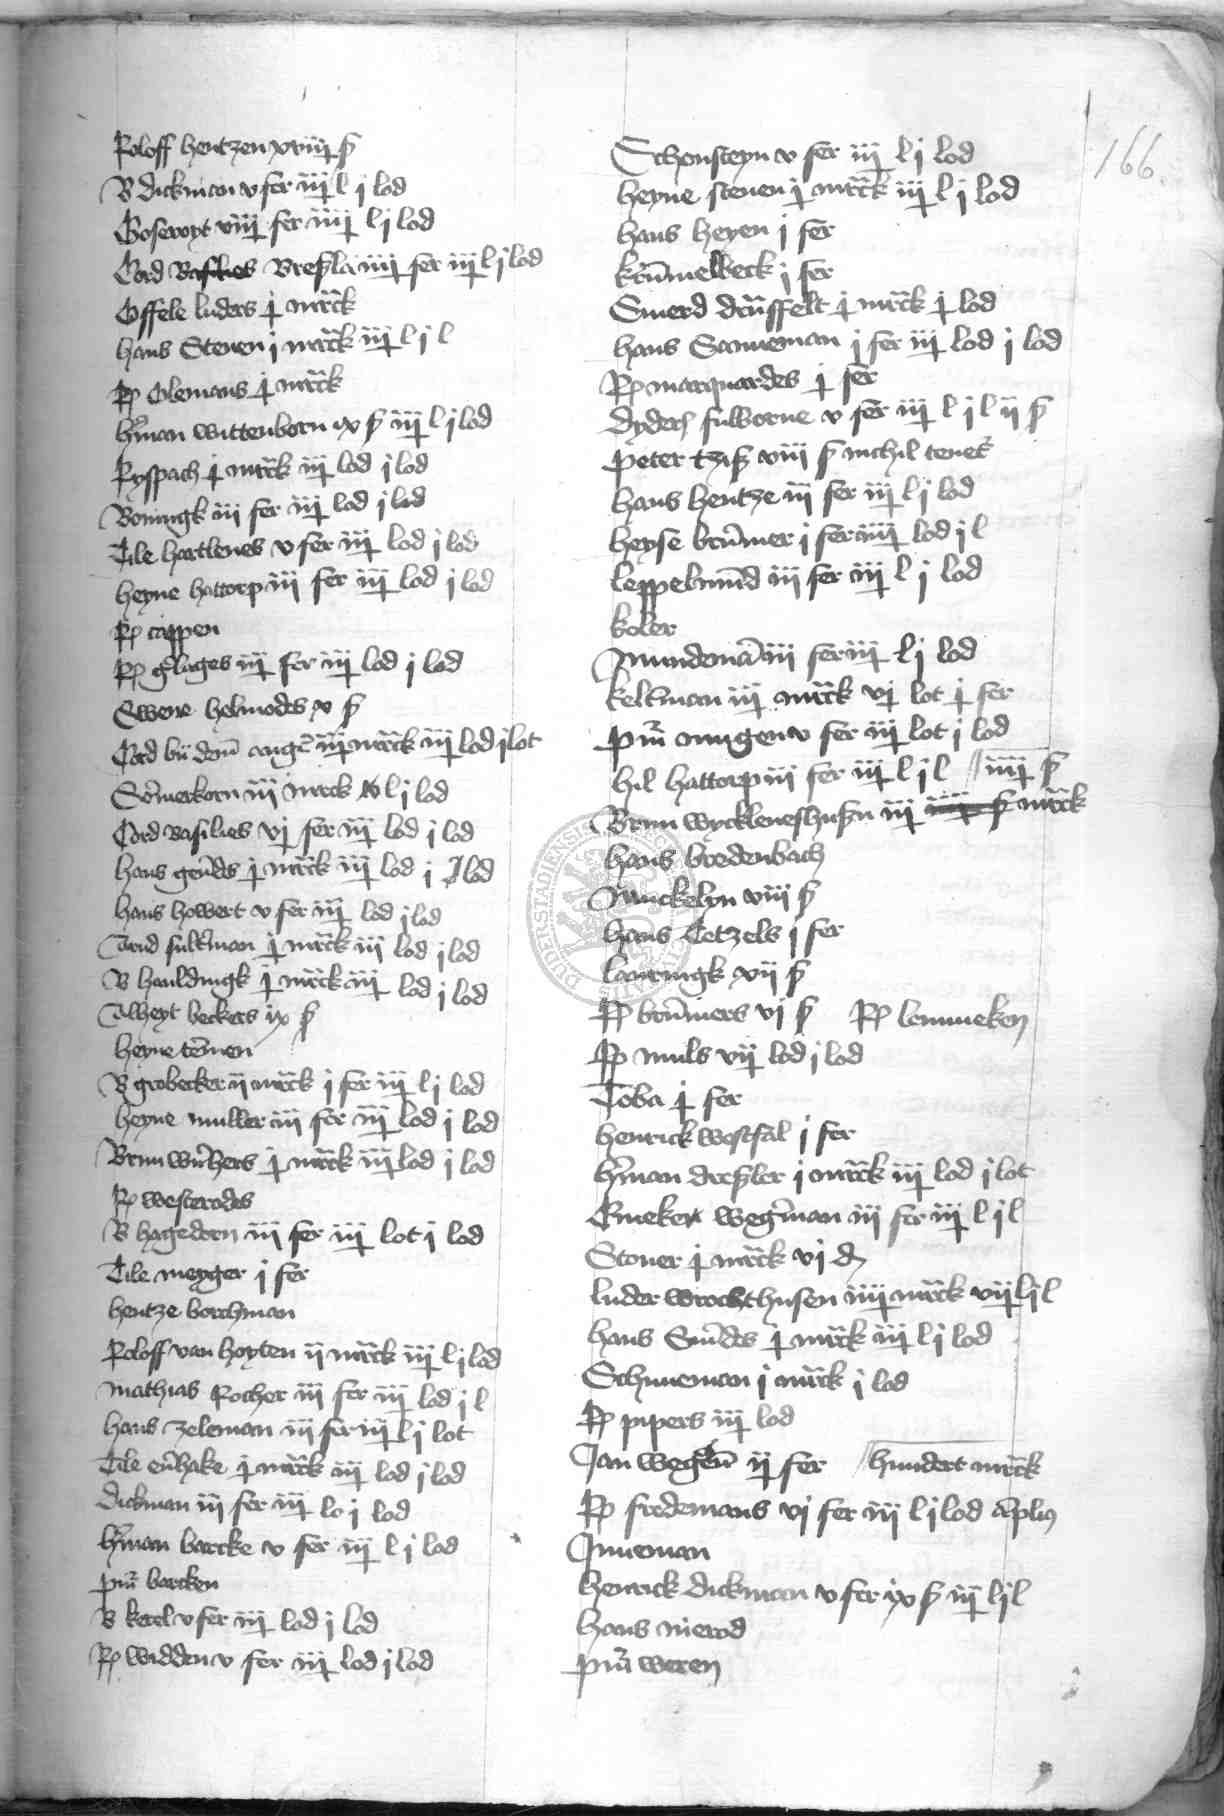 166.
Roloff hentzen xviiij ß
B dickman v fer iiij l j lod
Goservoyt viiij fer iiij l j lod
Cord Basilies Breslā iiij fer iiij l j lod
Offele luders j mrck
hans Stenen j mrck iiij l j l
Rꝑ Olemans j mrck
hman wittenborn ix ß iiij l j lod
Ryspach j mrck iiij lod j lod
Boningk iii fer iiij lod j lod
Tile hartlenes v fer iiij lod j lod
heyne hattorp iii fer iiij lod j lod
Rꝑ cappen
Rꝑ glages iiij fer iiij lod j lod
Swene helmodes x ß
Cord bü dem iiij mrck iiij lod j lot
Somerkorn iii mrck l j lod
Cord Basilies vj fer iiij lod j lod
hans gerdes j mrck iiij lod j lod
hans howert v fer iiij lod j lod
Arnd sultman j mrck iii lod j lod
B hauldungk j mrck iiij lod j lod
Alheyt beckers ix ß
heyne temen
B grobecker ii mrck j fer iiij l j lod
heyne muller iii fer iiij lod j lod
Brun wichers j mrck iiij lod j lod
Rꝑ westerodes
B hagedorn iii fer iiij lot j lod
Tile meyger j fer
hentze borchman
Roloff van hoyten ii mrck iiij l j lod
mathias Rocher iii fer iiij lod j l
hans zeleman iii fer iiij l j lot
Tile enhake j mrck iiij lod j lod
Dickman iii fer iiij lo j lod
hman barcke v fer iiij l j lod
pur barcken
B ketel v fer iiij lod j lod
Rꝑ widden v fer iiij lod j lod
Schonsteyn v fer iiij l j lod
heyne stenen j mrck iiij l j lod
hans heyen j fer
krumelbeck j fer
Smerd druffelt j mrck j lod
hans Sanneman j fer iiij lod j lod
Rꝑ marquardes j fer
dyderß sulworne v fer iiij l j l ii ß
Peter tziß viii ß nichil tenet
hans hentze iii fer iiij l j lod
heyse brumer j fer iiij lod j l
leppelmud iii fer iiij l j lod
koler
Jnundemā iii fer iiij l j lod
kelkman iiij mrck vj lot j fer
pur mugen v fer iiij lot j lod
hil hattorp iii fer iiij l j l iiij ß
Brun wyckleneshusen iii mrck
hans bredenbach
Nuckelyn viii ß
hans Tetzels j fer
lanringk xij ß
Rꝑ brumers vj ß Rꝑ lemmeken
Rꝑ muls vij lod j lod
Toba j fer
henrick westfal j fer
hman dreßler j mrck iiij lod j lot
Emeken wegman iii fer iiij l j l
Stoner j mrck vj d
luder wrochthusen iiij mrck vij l j l
hans Smedes j mrck iiij l j lod
Schuneman j mrck j lod
Rꝑ pipers iiij lod
Jan wegen ij fer hundert mrck
Rꝑ fredemans vj fer iii l j lod aplius
Jnneman
henrick dickman v fer ix ß iiij l j l
hans nierod
pur weren